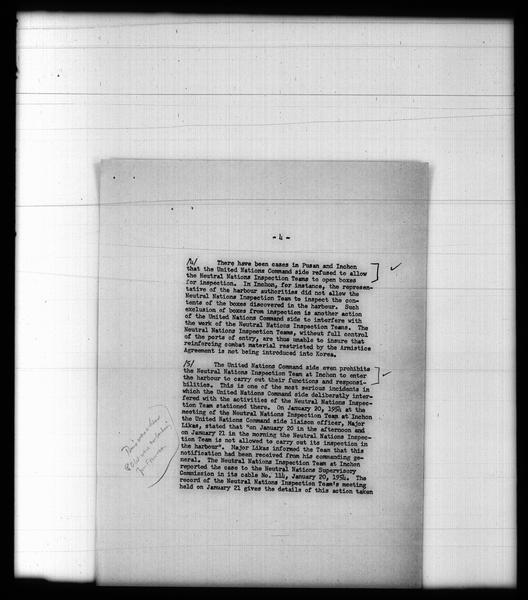 - 4 -
/4/ There have been cases in Pusan and Inchon
that the United Nations Command side refused to allow
the Neutral Nations Inspection Teams to open boxes
for inspection. In Inchon, for instance, the represen-
tative of the harbour authorities did not allow the
Neutral Nations Inspection Team to inspect the con-
tents of the boxes discovered in the harbour. Such
exclusion of boxes from inspection is another action
of the United Nations Command side to interfere with
the work of the Neutral Nations Inspection Teams. The
Neutral Nations Inspection Teams, without full control
of the ports of entry, are thus unable to insure that
reinforcing combat material restricted by the Armistice
Agreement is not being introduced into Korea.
/5/ The United Nations Command side even prohibits
the Neutral Nations Inspection Team at Inchon to enter
the harbour to carry out their functions and responsi-
bilities. This is one of the most serious incidents in
which the United Nations Command side deliberatly inter-
fered with the activities of the Neutral Nations Inspec-
tion Team stationed there. On January 20, 1954 at the
meeting of the Neutral Nations Inspection Team at Inchon
the United Nations Command side liaison officer, Major
Likas, stated that "on January 20 in the afternoon and
on January 21 in the morning the Neutral Nations Inspec-
tion Team is not allowed to carry out its inspection in
the harbour". Major Likas informed the Team that this
notification had been received from his commanding ge-
neral. The Neutral Nations Inspection Team at Inchon
reported the case to the Neutral Nations Supervisory
Commission in its cable No. 114, January 20, 1954. The
record of the Neutral Nations Inspection Team's meeting
held on January 21 gives the details of this action taken